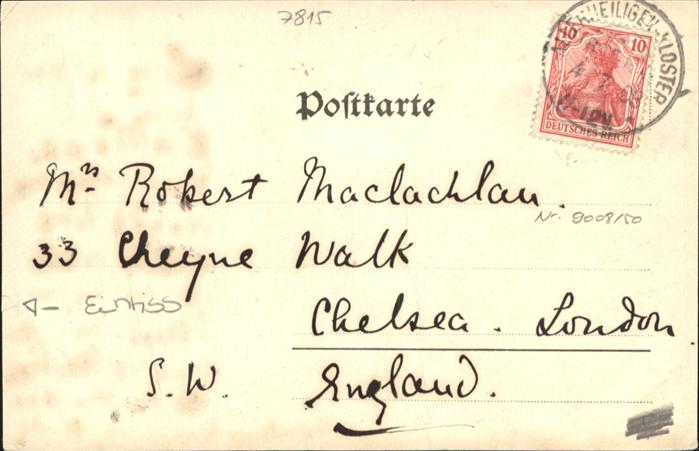 7815
ALLERHEILIGEN-KLOSTER
10 10
DEUTSCHES REICH
Postkarte
Mrs Robert Maclachlan.
Nr. 9008/50
33 Cheyne Walk
Einriss
Chelsea. London
S.W. England.